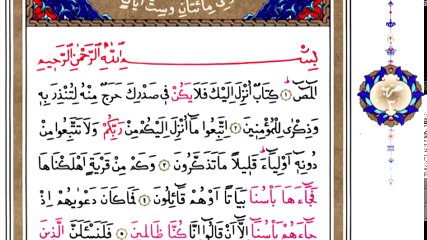 مائتان وست آيات
بِسْمِ اللّٰهِ الرَّحْمٰنِ الرَّحِيمِ
الٓمٓصٓ ﴿١﴾ كِتَابٌ اُنْزِلَ اِلَيْكَ فَلَا يَكُنْ فِي صَدْرِكَ حَرَجٌ مِنْهُ لِتُنْذِرَ بِهِ
وَذِكْرٰى لِلْمُؤْمِنِينَ ﴿٢﴾ اِتَّبِعُوا مَٓا اُنْزِلَ اِلَيْكُمْ مِنْ رَبِّكُمْ وَلَا تَتَّبِعُوا مِنْ
دُونِهِٓ اَوْلِيَٓاءَ قَلِيلًا مَا تَذَكَّرُونَ ﴿٣﴾ وَكَمْ مِنْ قَرْيَةٍ اَهْلَكْنَاهَا
فَجَٓاءَهَا بَأْسُنَا بَيَاتًا اَوْ هُمْ قَٓائِلُونَ ﴿٤﴾ فَمَا كَانَ دَعْوٰيهُمْ اِذْ
جَٓاءَهُمْ بَأْسُنَٓا اِلَّٓا اَنْ قَالُٓوا اِنَّا كُنَّا ظَالِمِينَ ﴿٥﴾ فَلَنَسْـَٔلَنَّ الَّذِينَ